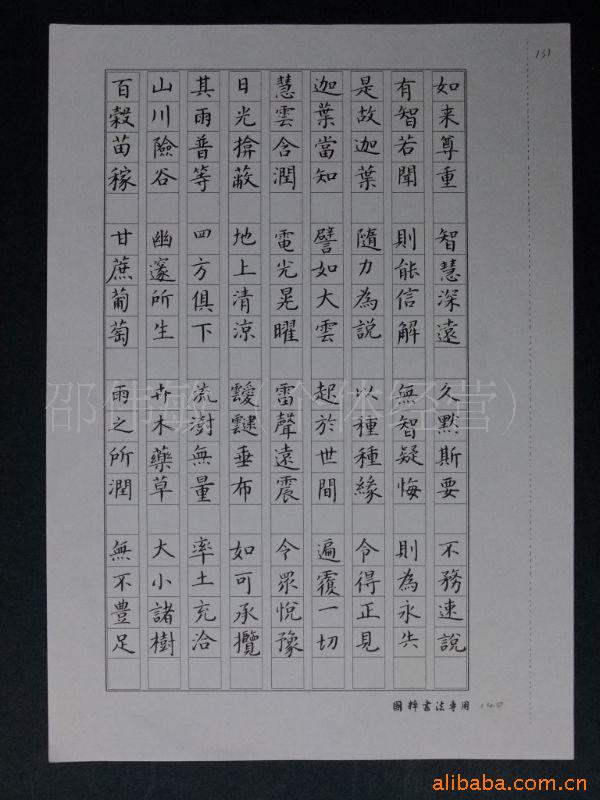 131
如来尊重 智慧深遠 久默斯要 不務速說
有智若聞 則能信解 無智疑悔 則為永失
是故迦葉 隨力為說 以種種緣 令得正見
迦葉當知 譬如大雲 起於世間 遍覆一切
慧雲含潤 電光晃曜 雷聲遠震 令眾悅豫
日光揜蔽 地上清涼 靉靆垂布 如可承攬
其雨普等 四方俱下 流澍無量 率土充洽
山川險谷 幽邃所生 卉木藥草 大小諸樹
百穀苗稼 甘蔗葡萄 雨之所潤 無不豊足
國粹書法専用
140
邵伟敏（个体经营）
alibaba.com.cn